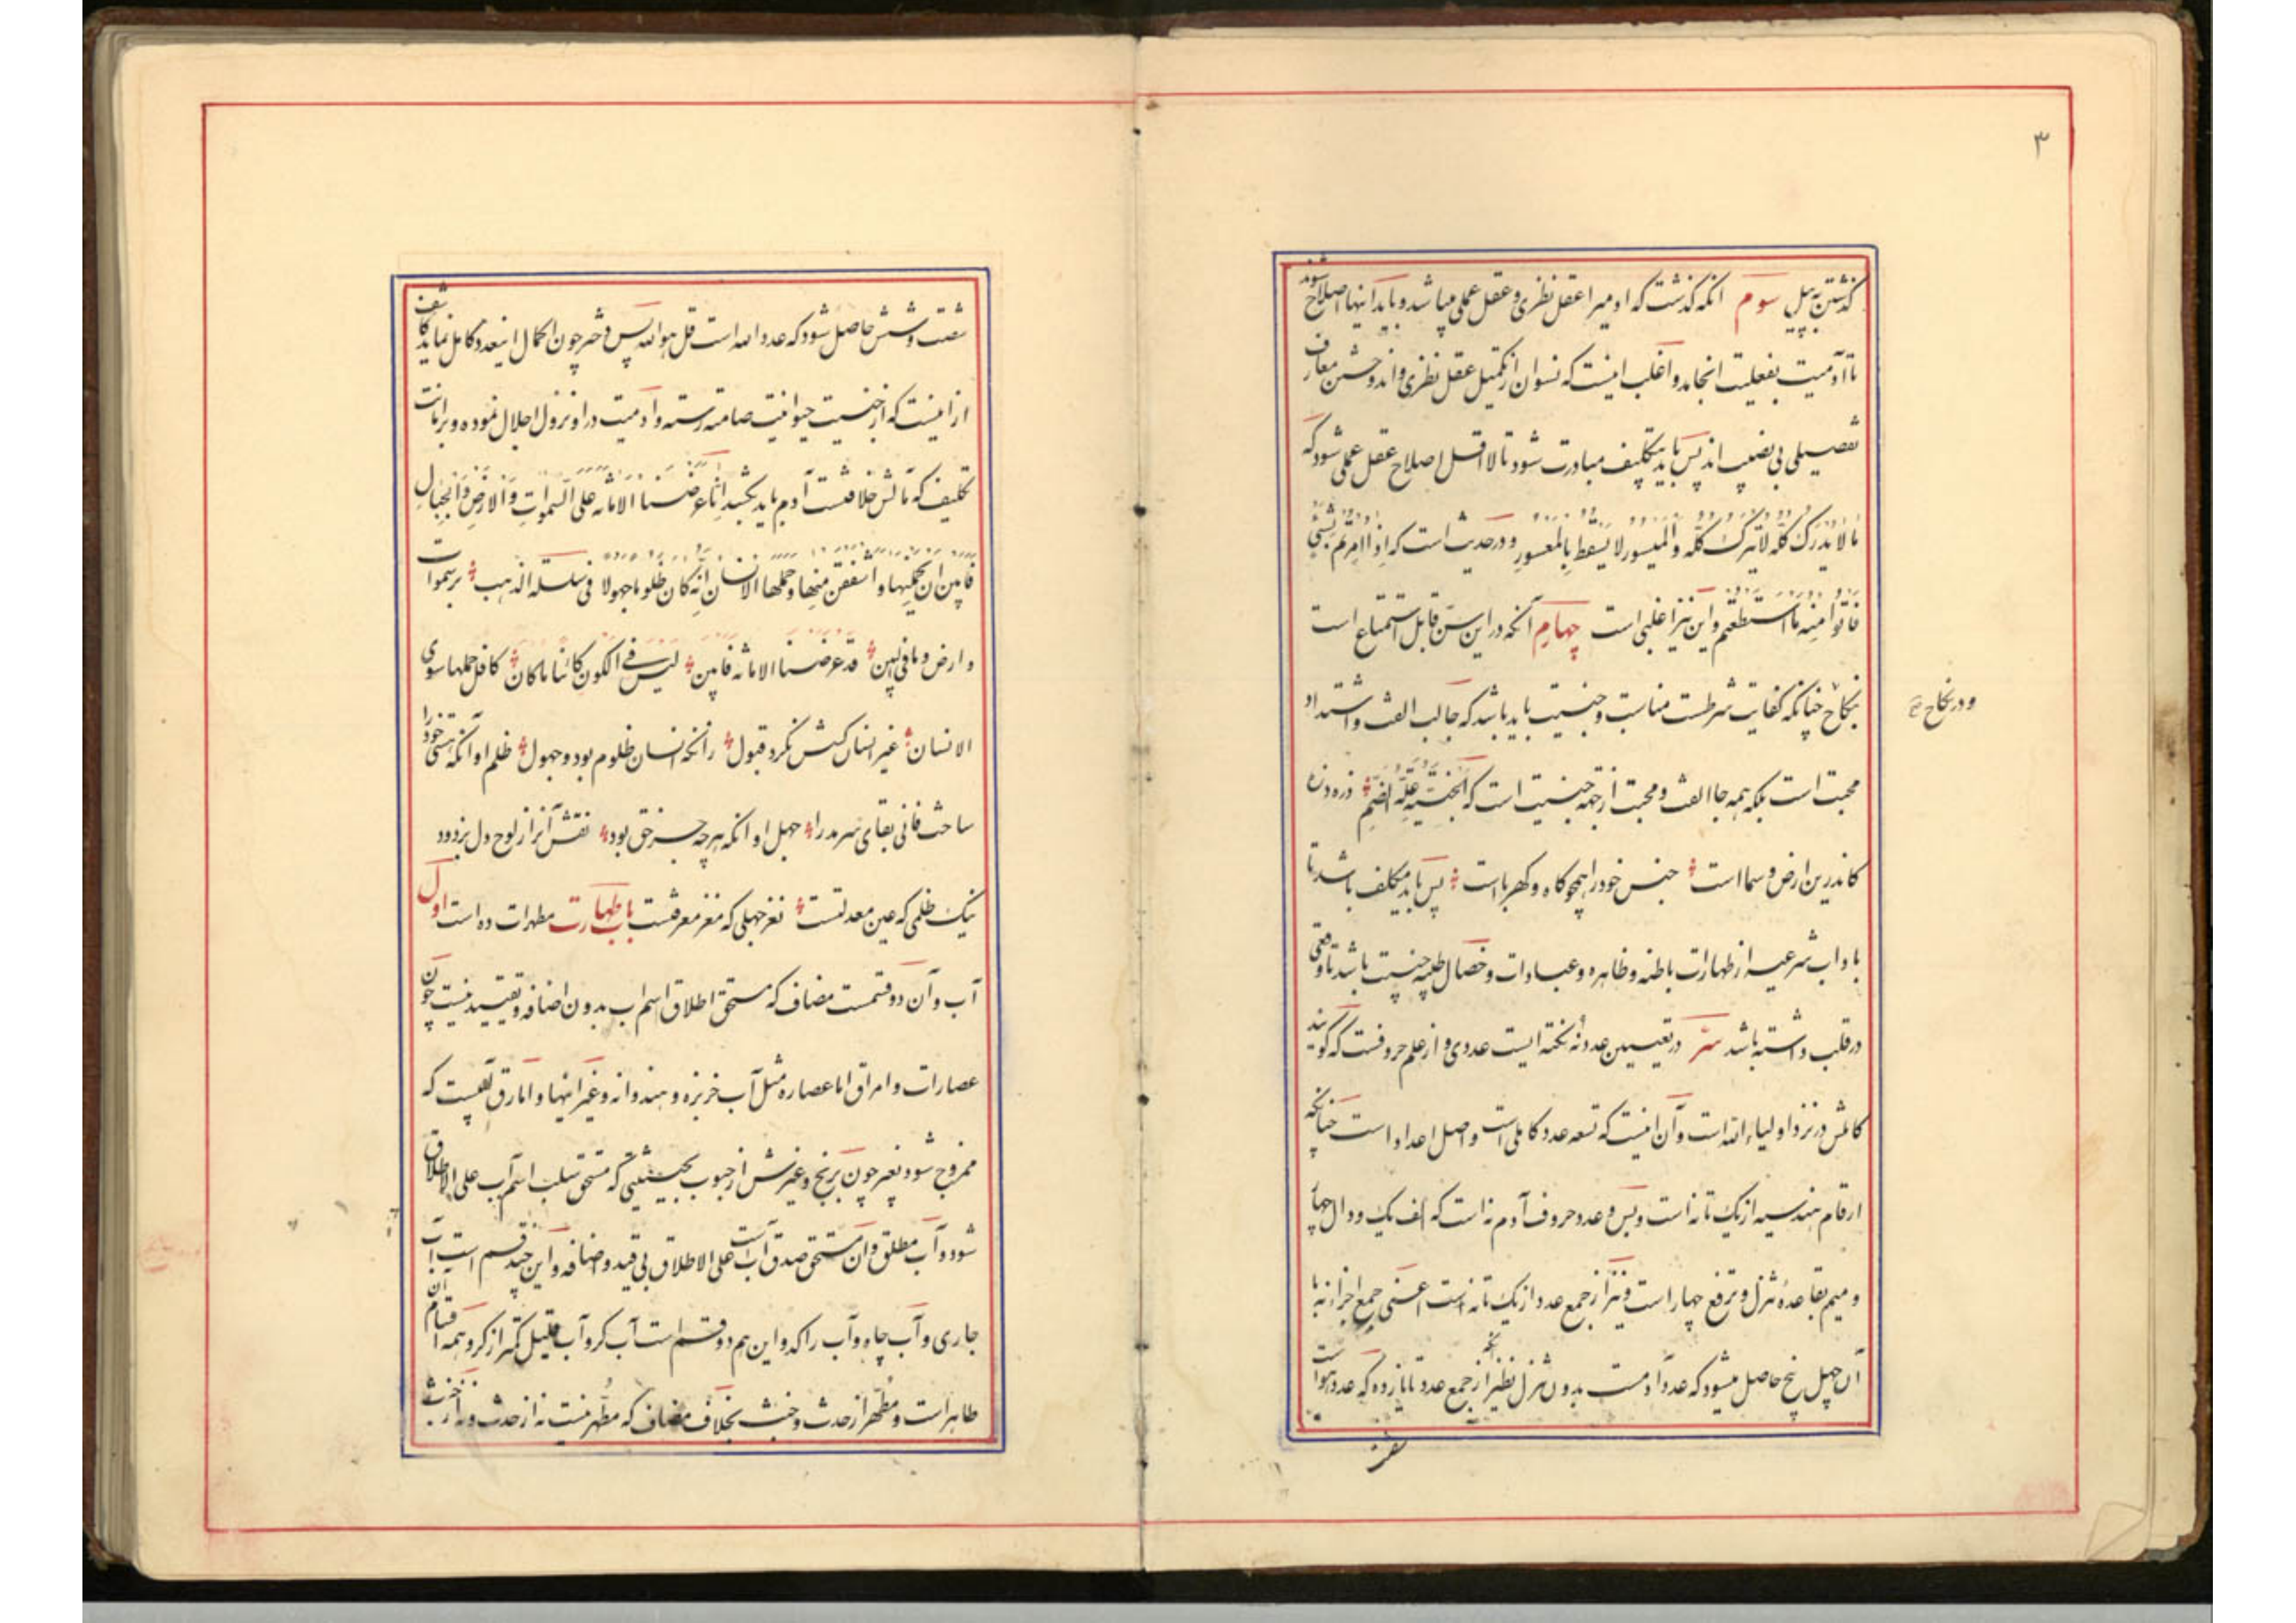 ۳
گذشتن به پل سوم آنکه گذشت که آدمیرا عقل نظری و عقل عملی میباشد و باید اینها اصلاح شوند
تا آدمیت بفعلیت انجامد و اغلب اینست که نسوان از تکمیل عقل نظری واند و حسن معارف
تفصیلی بی نصیب اند پس باید بتکلیف مبادرت شود تا لااقل اصلاح عقل عملی شود که
مَا لَا یُدْرَکُ کُلُّهُ لَا یُتْرَکُ کُلُّهُ وَ الْمَیْسُورُ لَا یَسْقُطُ بِالْمَعْسُورِ و در حدیث است که اِذَا اُمِرْتُمْ بِشَیْءٍ
فَاْتُوا مِنْهُ مَا اسْتَطَعْتُمْ و این نیز اغلبی است چهارم آنکه در این سن قابل استمتاع است
و در نکاح
بنکاح چنانکه کفایت شرطست مناسبت و جنسیت باید باشد که جالب الفت و اشتداد
محبت است بلکه همه جا الفت و محبت از جهه جنسیت است که اَلْجِنْسِیَّةُ عِلَّةُ الضَّمِّ ذره ذره
کاندرین ارض و سما است جنس خود را همچو کاه و کهرباست پس باید مکلف باشد تا
باداب شرعیه از طهارات باطنه و ظاهره و عبادات و خصال طیبه جنسیت باشد تا وقعی
در قلب داشته باشد سرّ در تعیین عدد نُه نکته ایست عددی و از علم حروفست که گویند
کاملش در نزد اولیاء الله است و آن اینست که تسعه عدد کاملی است و اصل اعداد است چنانکه
ارقام هندسیه از یک تا نه است و بس و عدد حروف آدم نه است که الف یک و دال چهار
و میم بقاعدهٔ تنزل و ترفع چهار است و نیز از جمع عدد از یک تا نه است اعنی جمع اجزاء نه با
آن چهل پنج حاصل میشود که عدد آدمست بدون تنزل نظیر آنکه از جمع عدد تا یازده که عدد هو است
شصت
شصت و شش حاصل شود که عدد الله است قل هو الله پس دختر چون اکمال اینعدد کامل نماید کاشف
از اینست که از جنسیت حیوانیت صامته رسته و آدمیت در او نزول اجلال نموده و بر امانت
تکلیف که مآلش خلافتست آدم باید بکشد اِنَّا عَرَضْنَا الْاَمَانَةَ عَلَی السَّمٰوَاتِ وَ الْاَرْضِ وَ الْجِبَالِ
فَاَبَیْنَ اَنْ یَحْمِلْنَهَا وَ اَشْفَقْنَ مِنْهَا وَ حَمَلَهَا الْاِنْسَانُ اِنَّهُ کَانَ ظَلُومًا جَهُولًا فی سلسلة الذهب بر سموات
و ارض و ما فیهن قَدْ عَرَضْنَا الامانة فَاَبَیْنَ لیس فی الکون کائنا ما کان کافل حملها سوی
الانسان غیر انسان کسش نکرد قبول زانکه انسان ظلوم بود و جهول ظلم او آنکه هستی خود را
ساخت فانی بقای سرمد را جهل او آنکه هرچه جز حق بود نقش آنرا از لوح دل بزدود
نیک ظلمی که عین معدلتست نغز جهلی که مغز معرفتست باب طهارت مطهرات ده است اول
آب و آن دو قسمست مضاف که مستحق اطلاق اسم آب بدون اضافه و تقیید نیست چون
عصارات و امراق اما عصاره مثل آب خربزه و هندوانه و غیر اینها و اما مرق آبیست که
ممزوج شود بغیر چون برنج و غیرش از حبوب بحیثیتی که مستحق سلب اسم آب علی الاطلاق
شود و آب مطلق و آن مستحق صدق آب است علی الاطلاق بی قید و اضافه و این چند قسم است آب
جاری و آب چاه و آب راکد و این هم دو قسم است آب کر و آب قلیل کمتر از کر و همه اقسام آن
طاهر است و مُطَهِّر از حدث و خبث بخلاف مضاف که مطهر نیست نه از حدث و نه از خبث